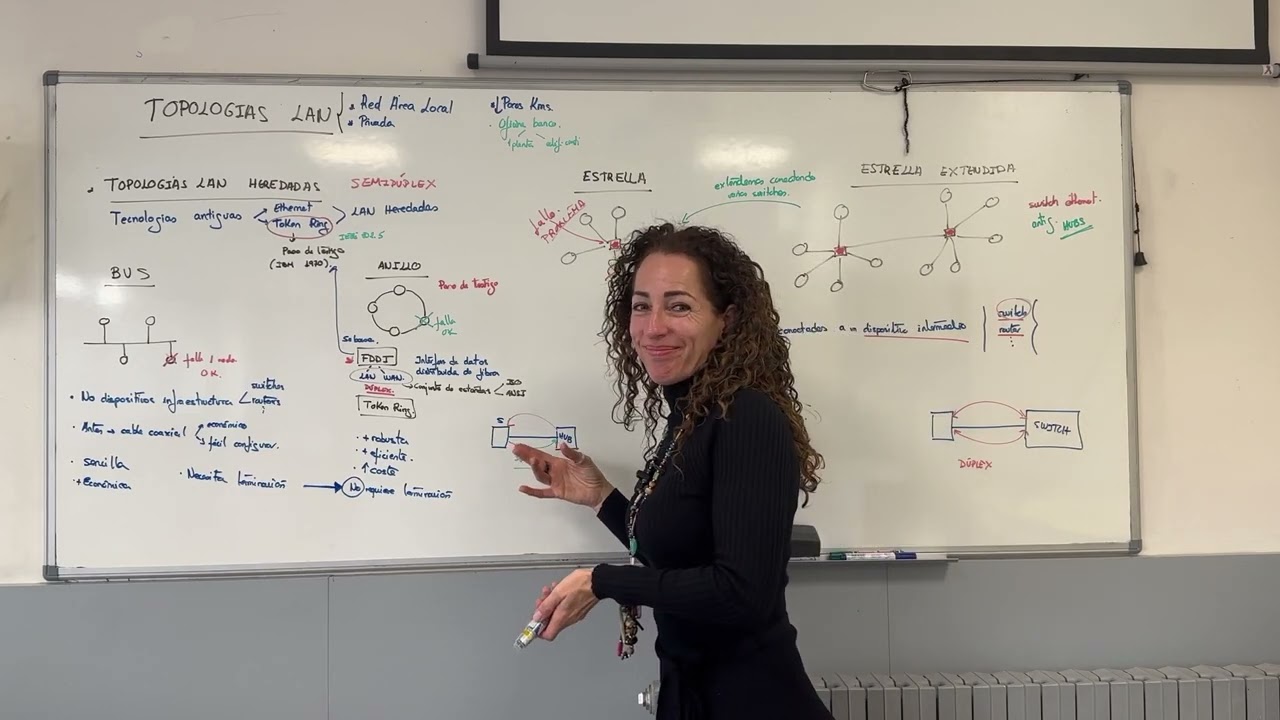 TOPOLOGIAS LAN
* Red Área Local
* Privada
↓ Pocos Kms.
· Oficina banco.
1 planta
. TOPOLOGIAS LAN HEREDADAS SEMIDÚPLEX
Tecnologias antiguas
Ethernet
Token Ring
LAN Heredadas
IEEE 802.5
Paso de testigo
(IBM 1970)
BUS
falla 1 nodo
OK.
· No dispositivos infraestructura
switches
routers
· Antes → cable coaxial
económico
fácil configurar.
· sencilla
· + Económica
· Necesita terminación
ANILLO
Paso de testigo
falla
OK
se basa.
FDDI
LAN WAN.
DÚPLEX.
Interfaz de datos
distribuida de fibra
Conjunto de estándares
ISO
ANSI
Token Ring
· + robusta
· + eficiente.
· ↑ coste
No requiere terminación
ESTRELLA
falla:
PROBLEMA
extendemos conectando
varios switches.
ESTRELLA EXTENDIDA
switch ethernet.
antig. HUBS
conectados a un dispositivo intermedio
switch
router
S
HUB
SWITCH
DÚPLEX